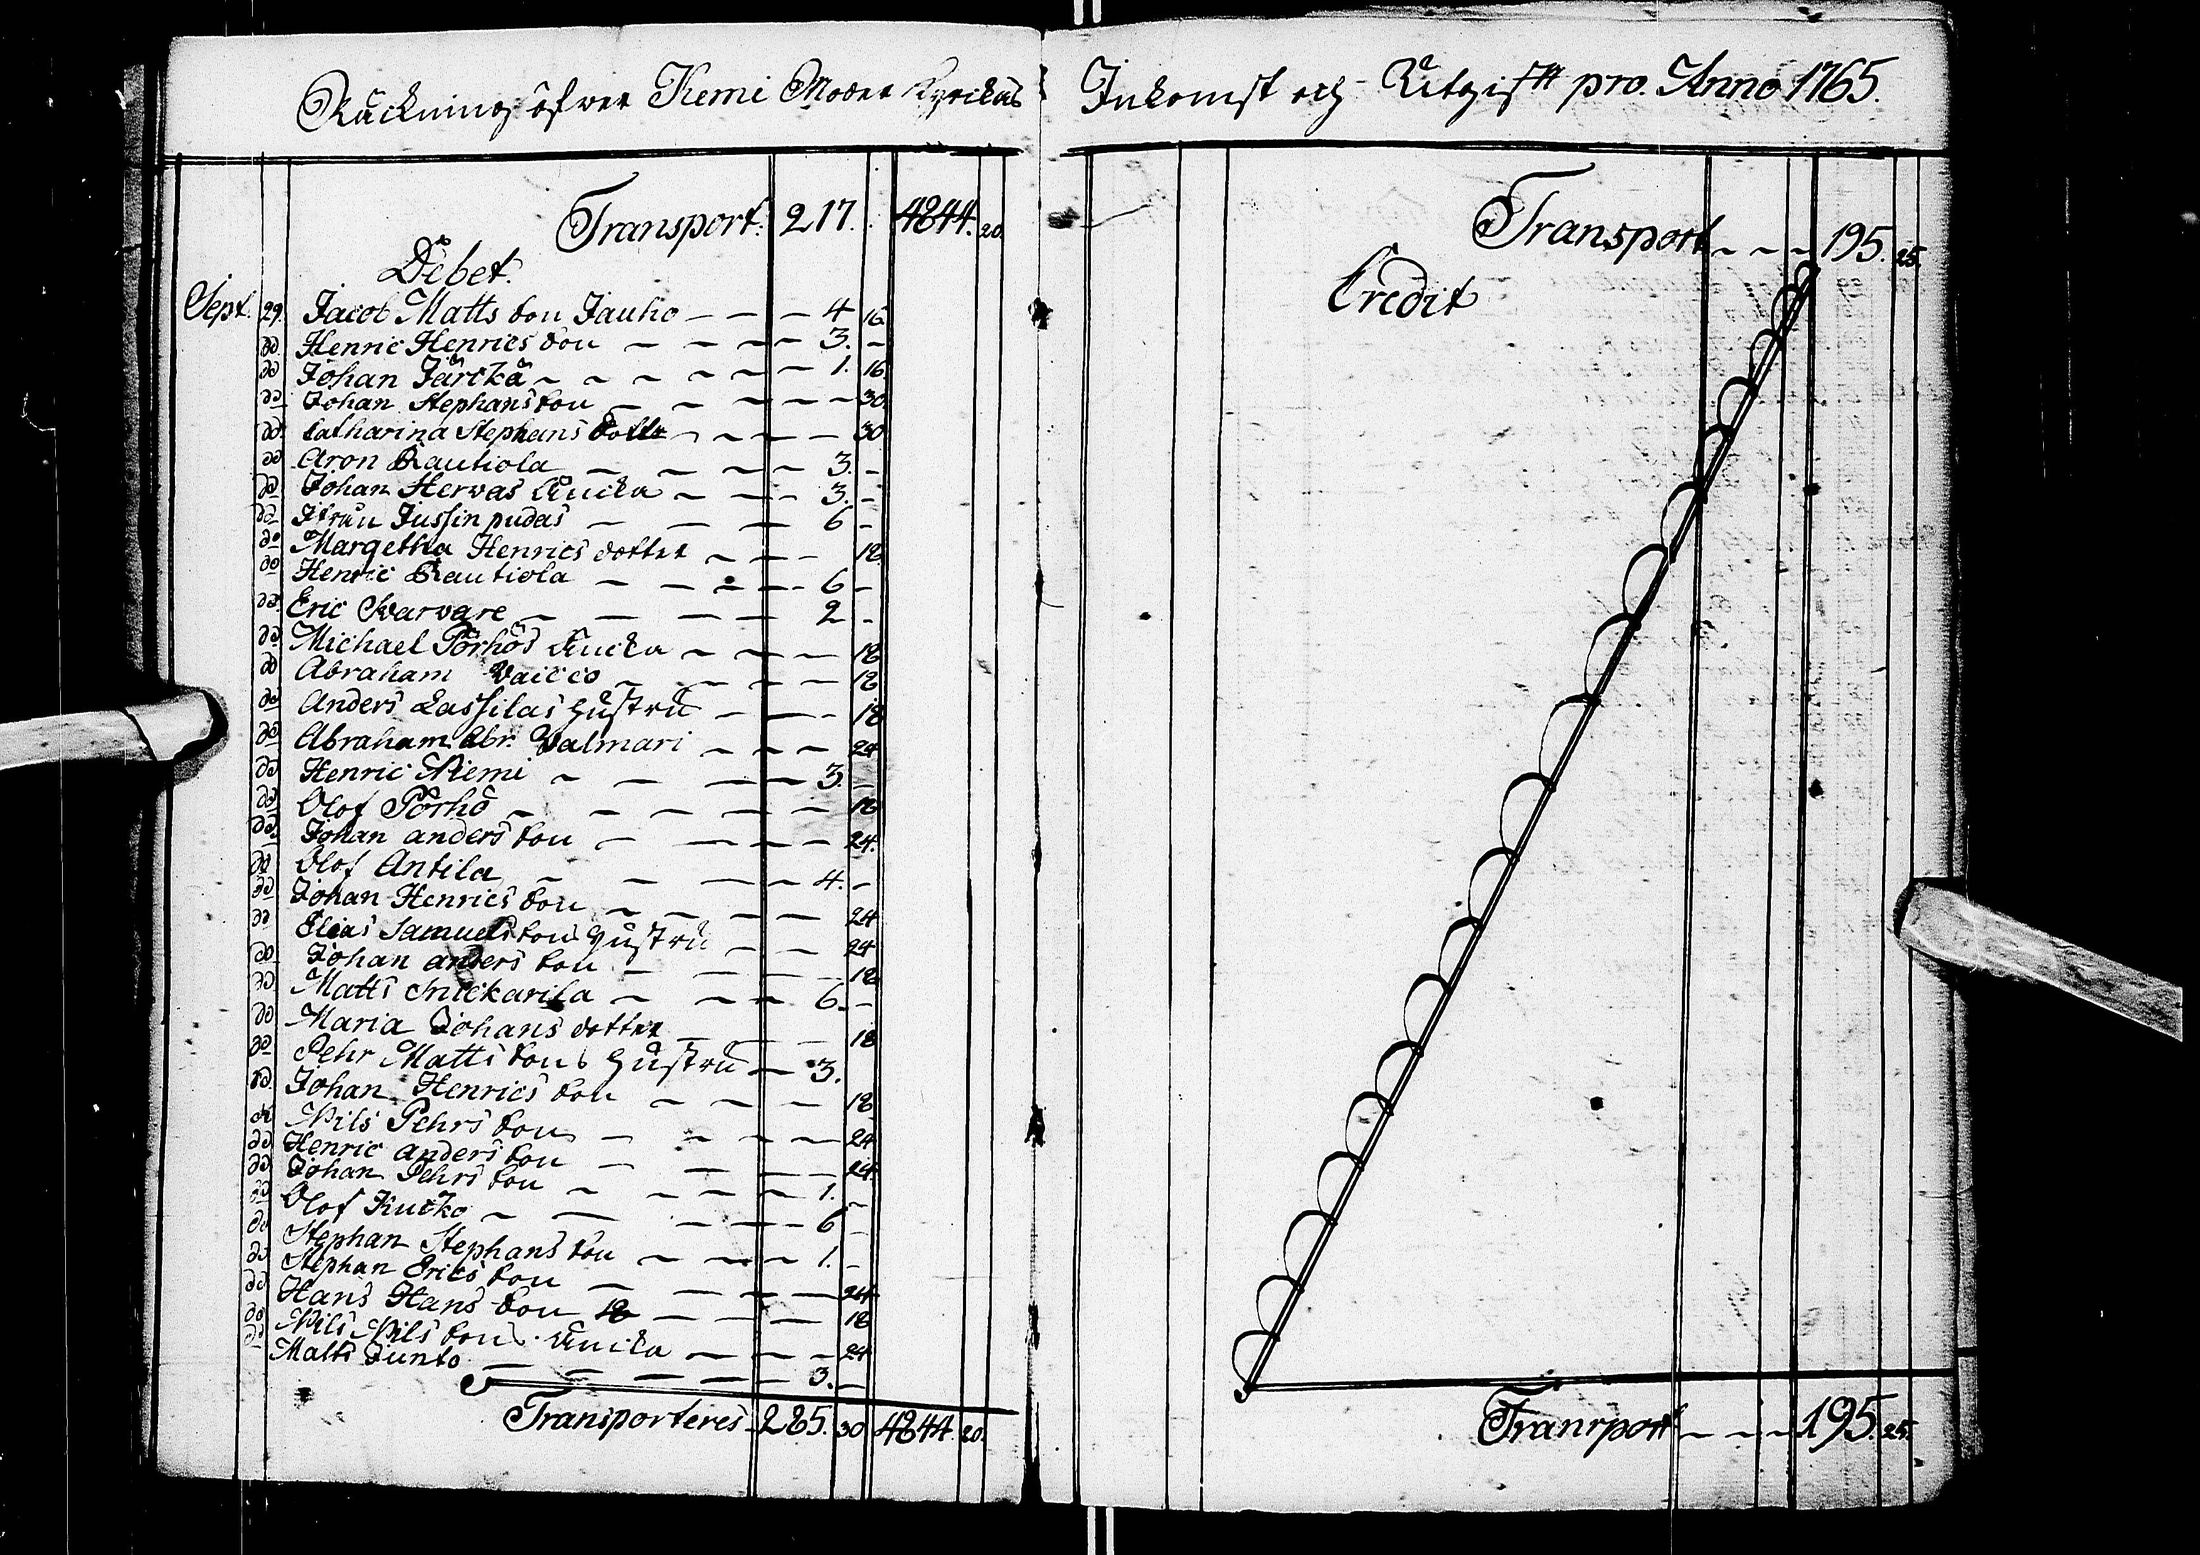 Räckning öfver Kemi Moder Kyrckas
Transport. 217. 4844. 20.
Debet.
Sept. 29. Jacob Matts son Jauho — — — 4 16
do Henric Henrics son — — — 3. —
do Johan Järckä — — — 1. 16
do Johan Stephans son — — — 30
do Catharina Stephans dotter — — — 30
do Aron Rautiola — — — 3. —
do Johan Hervas Änicka — — — 3. —
do Hustru Jussinpudas — — — 6 —
do Margetha Henrics dotter — — — 18
do Henric Rautiola — — — 6 —
do Eric Karvare — — — 2 —
do Michael Pörhös Änicka — — — 18
do Abraham Vaicco — — — 18
do Anders Lassilas hustru — — — 18
do Abraham Abr. Valmari — — — 24
do Henric Niemi — — — 3. —
do Olof Pörhö — — — 18
do Johan anders son — — — 24.
do Olof Antila — — — 4. —
do Johan Henrics son — — — 24
do Elias Samuels sons hustru — — 24
do Johan anders son — — — 18
do Matts Mickarila — — — 6. —
do Maria Johans dotter — — — 18
do Pehr Matts sons hustru — 3.
do Johan Henrics son — — — 18
do Nils Pehrs son — — — 24
do Henric anders son — — — 24.
do Johan Pehrs son — — — 1. —
do Olof Kucko — — — 6 —
do Stephan Stephans son — — — 1. —
do Stephan Erics son — — — 24
do Hans Hans son 18 — — — 18
do Nils Nils sons Änicka — — — 24
do Matts Junto — — — 3. —
Transporteres 285. 30 4844. 20.
Inkomst och Utgift pro. Anno 1765.
Transport — — — 195. 25.
Credit
Transport — — — 195. 25.